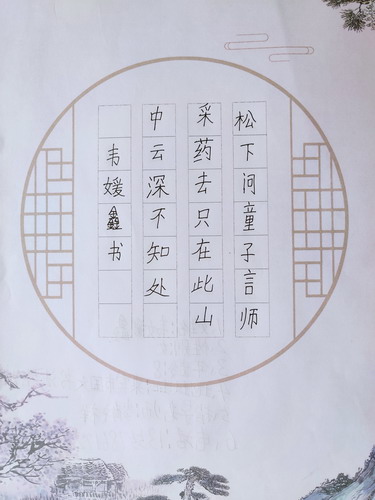 松下问童子言师
采药去只在此山
中云深不知处
韦媛鑫书